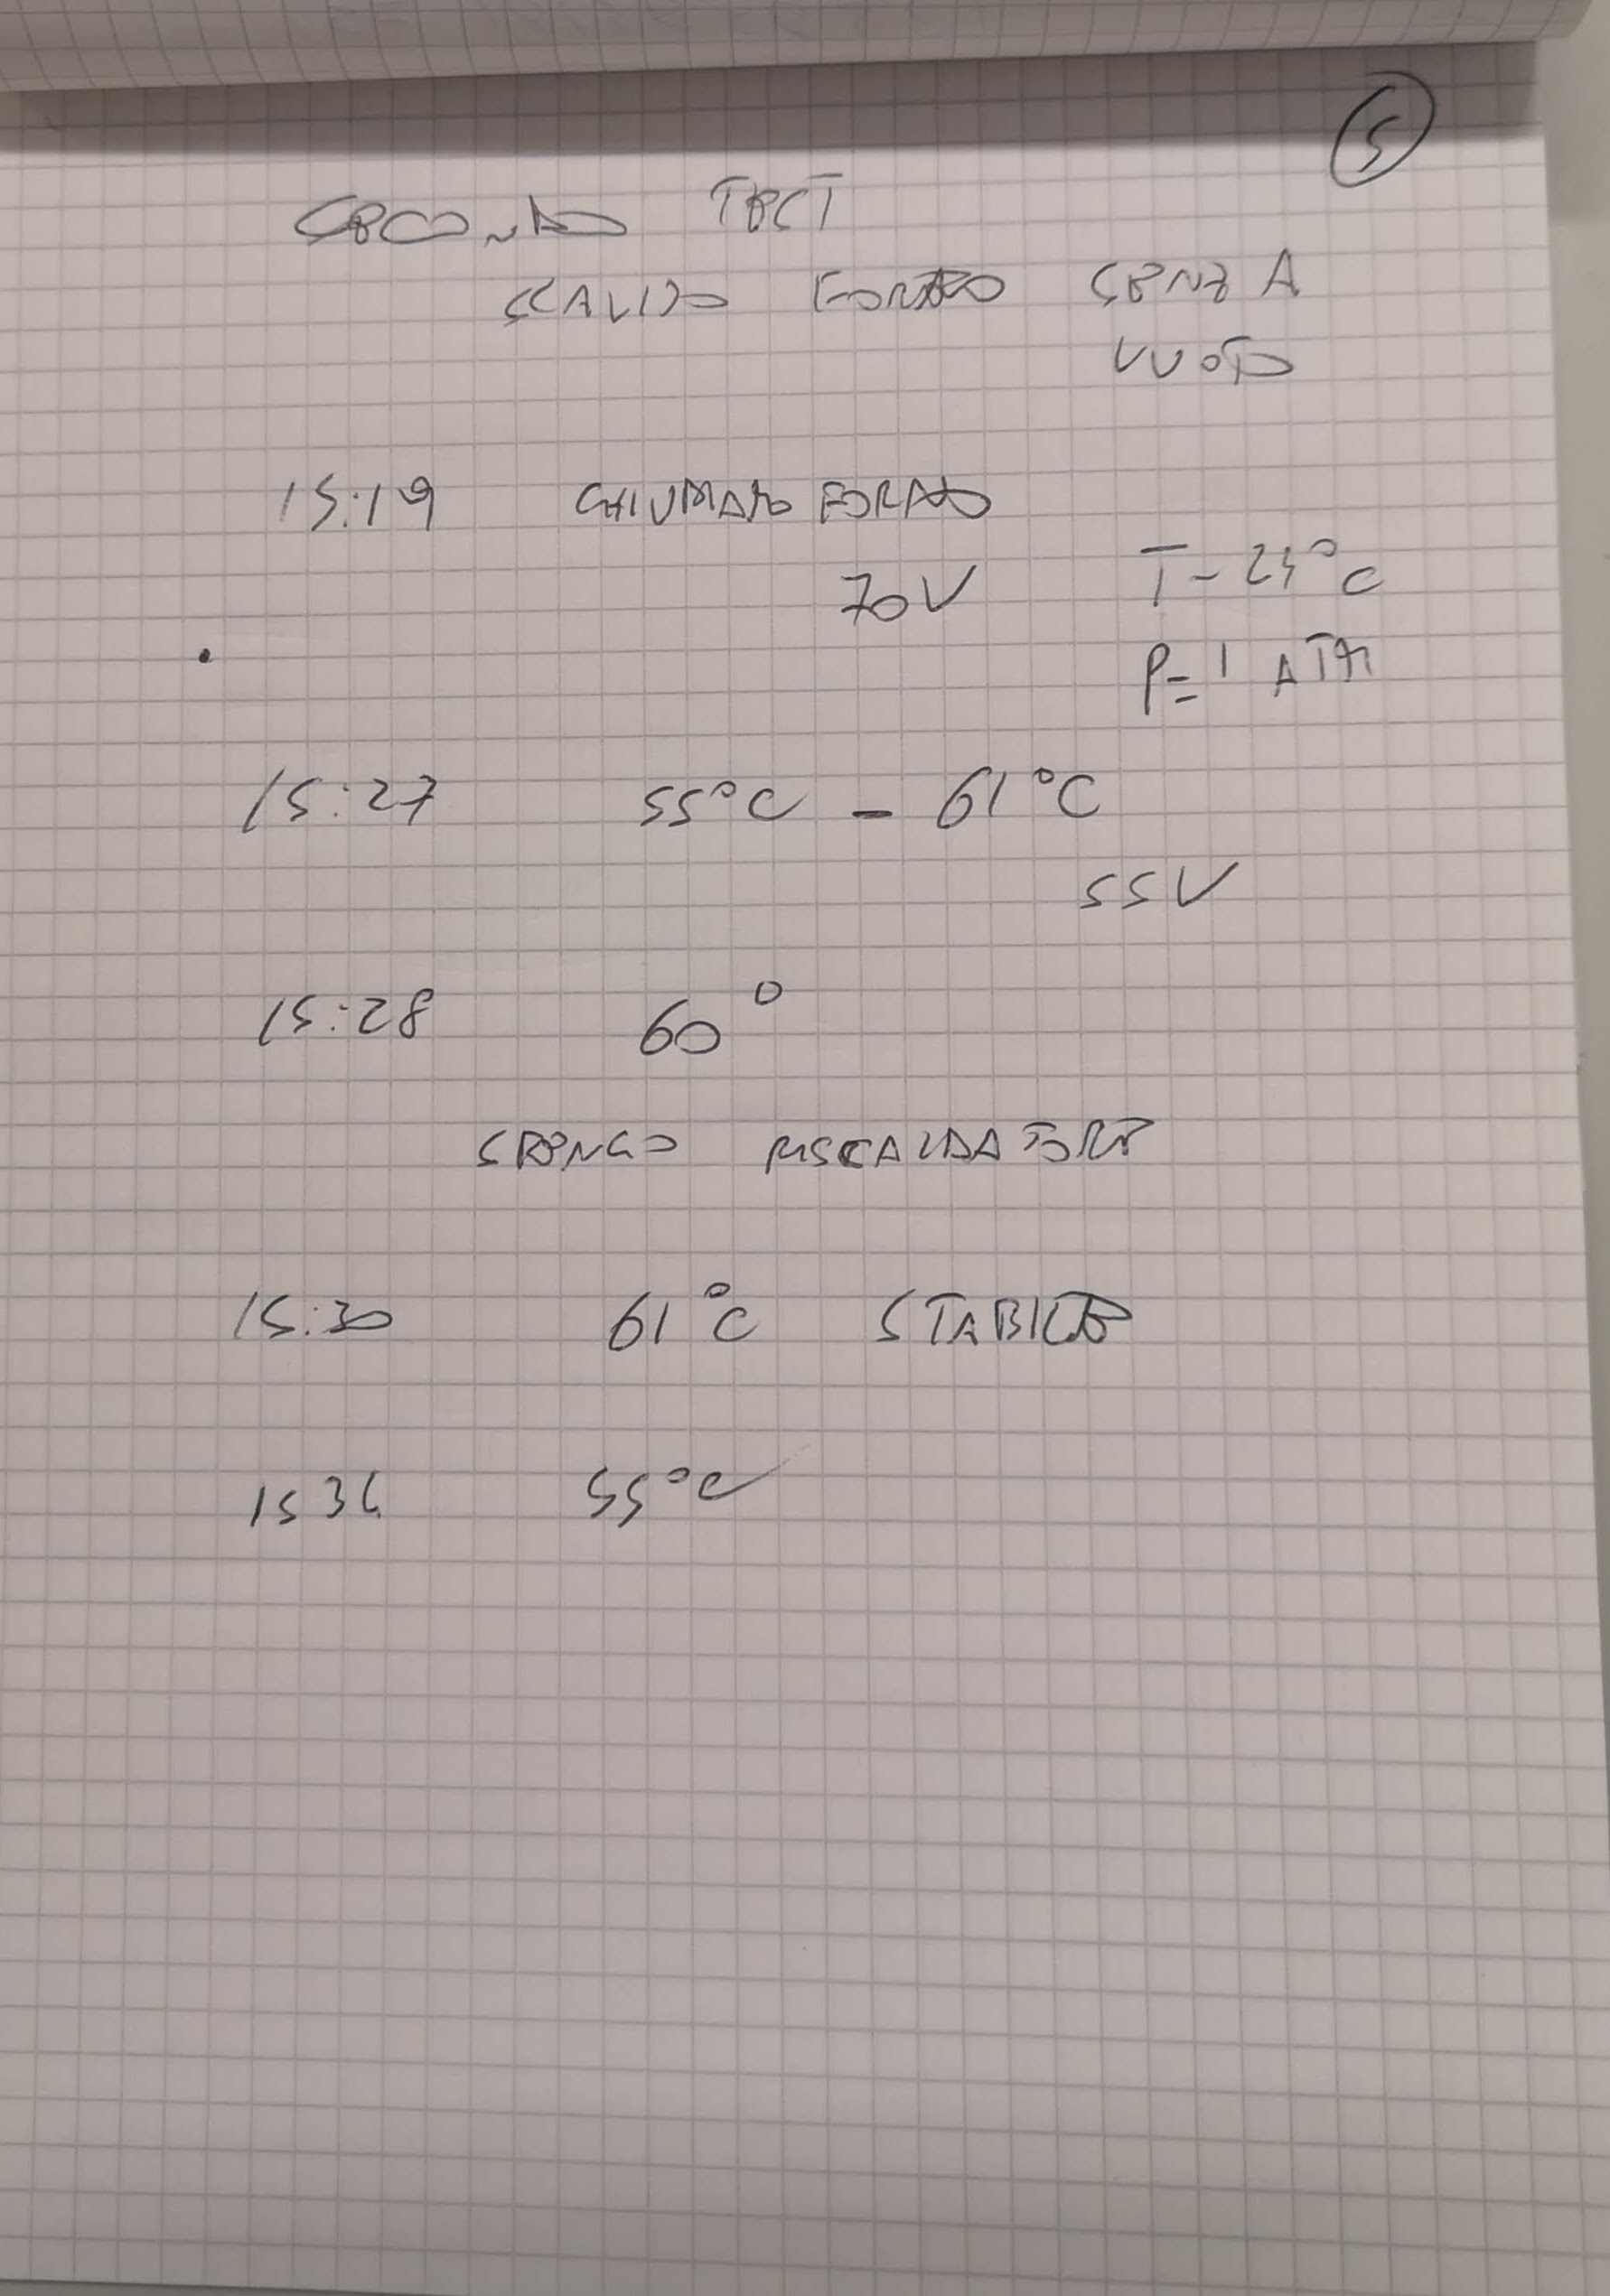 5
SECONDO TEST
SCALDO FORNO SENZA
VUOTO
15:19 CHIUDIAMO FORNO
70V T = 25°C
P = 1 ATM
15:27 55°C - 61°C
55V
15:28 60°
SPENGO RISCALDATORE
15:30 61°C STABILE
15 36 55°C